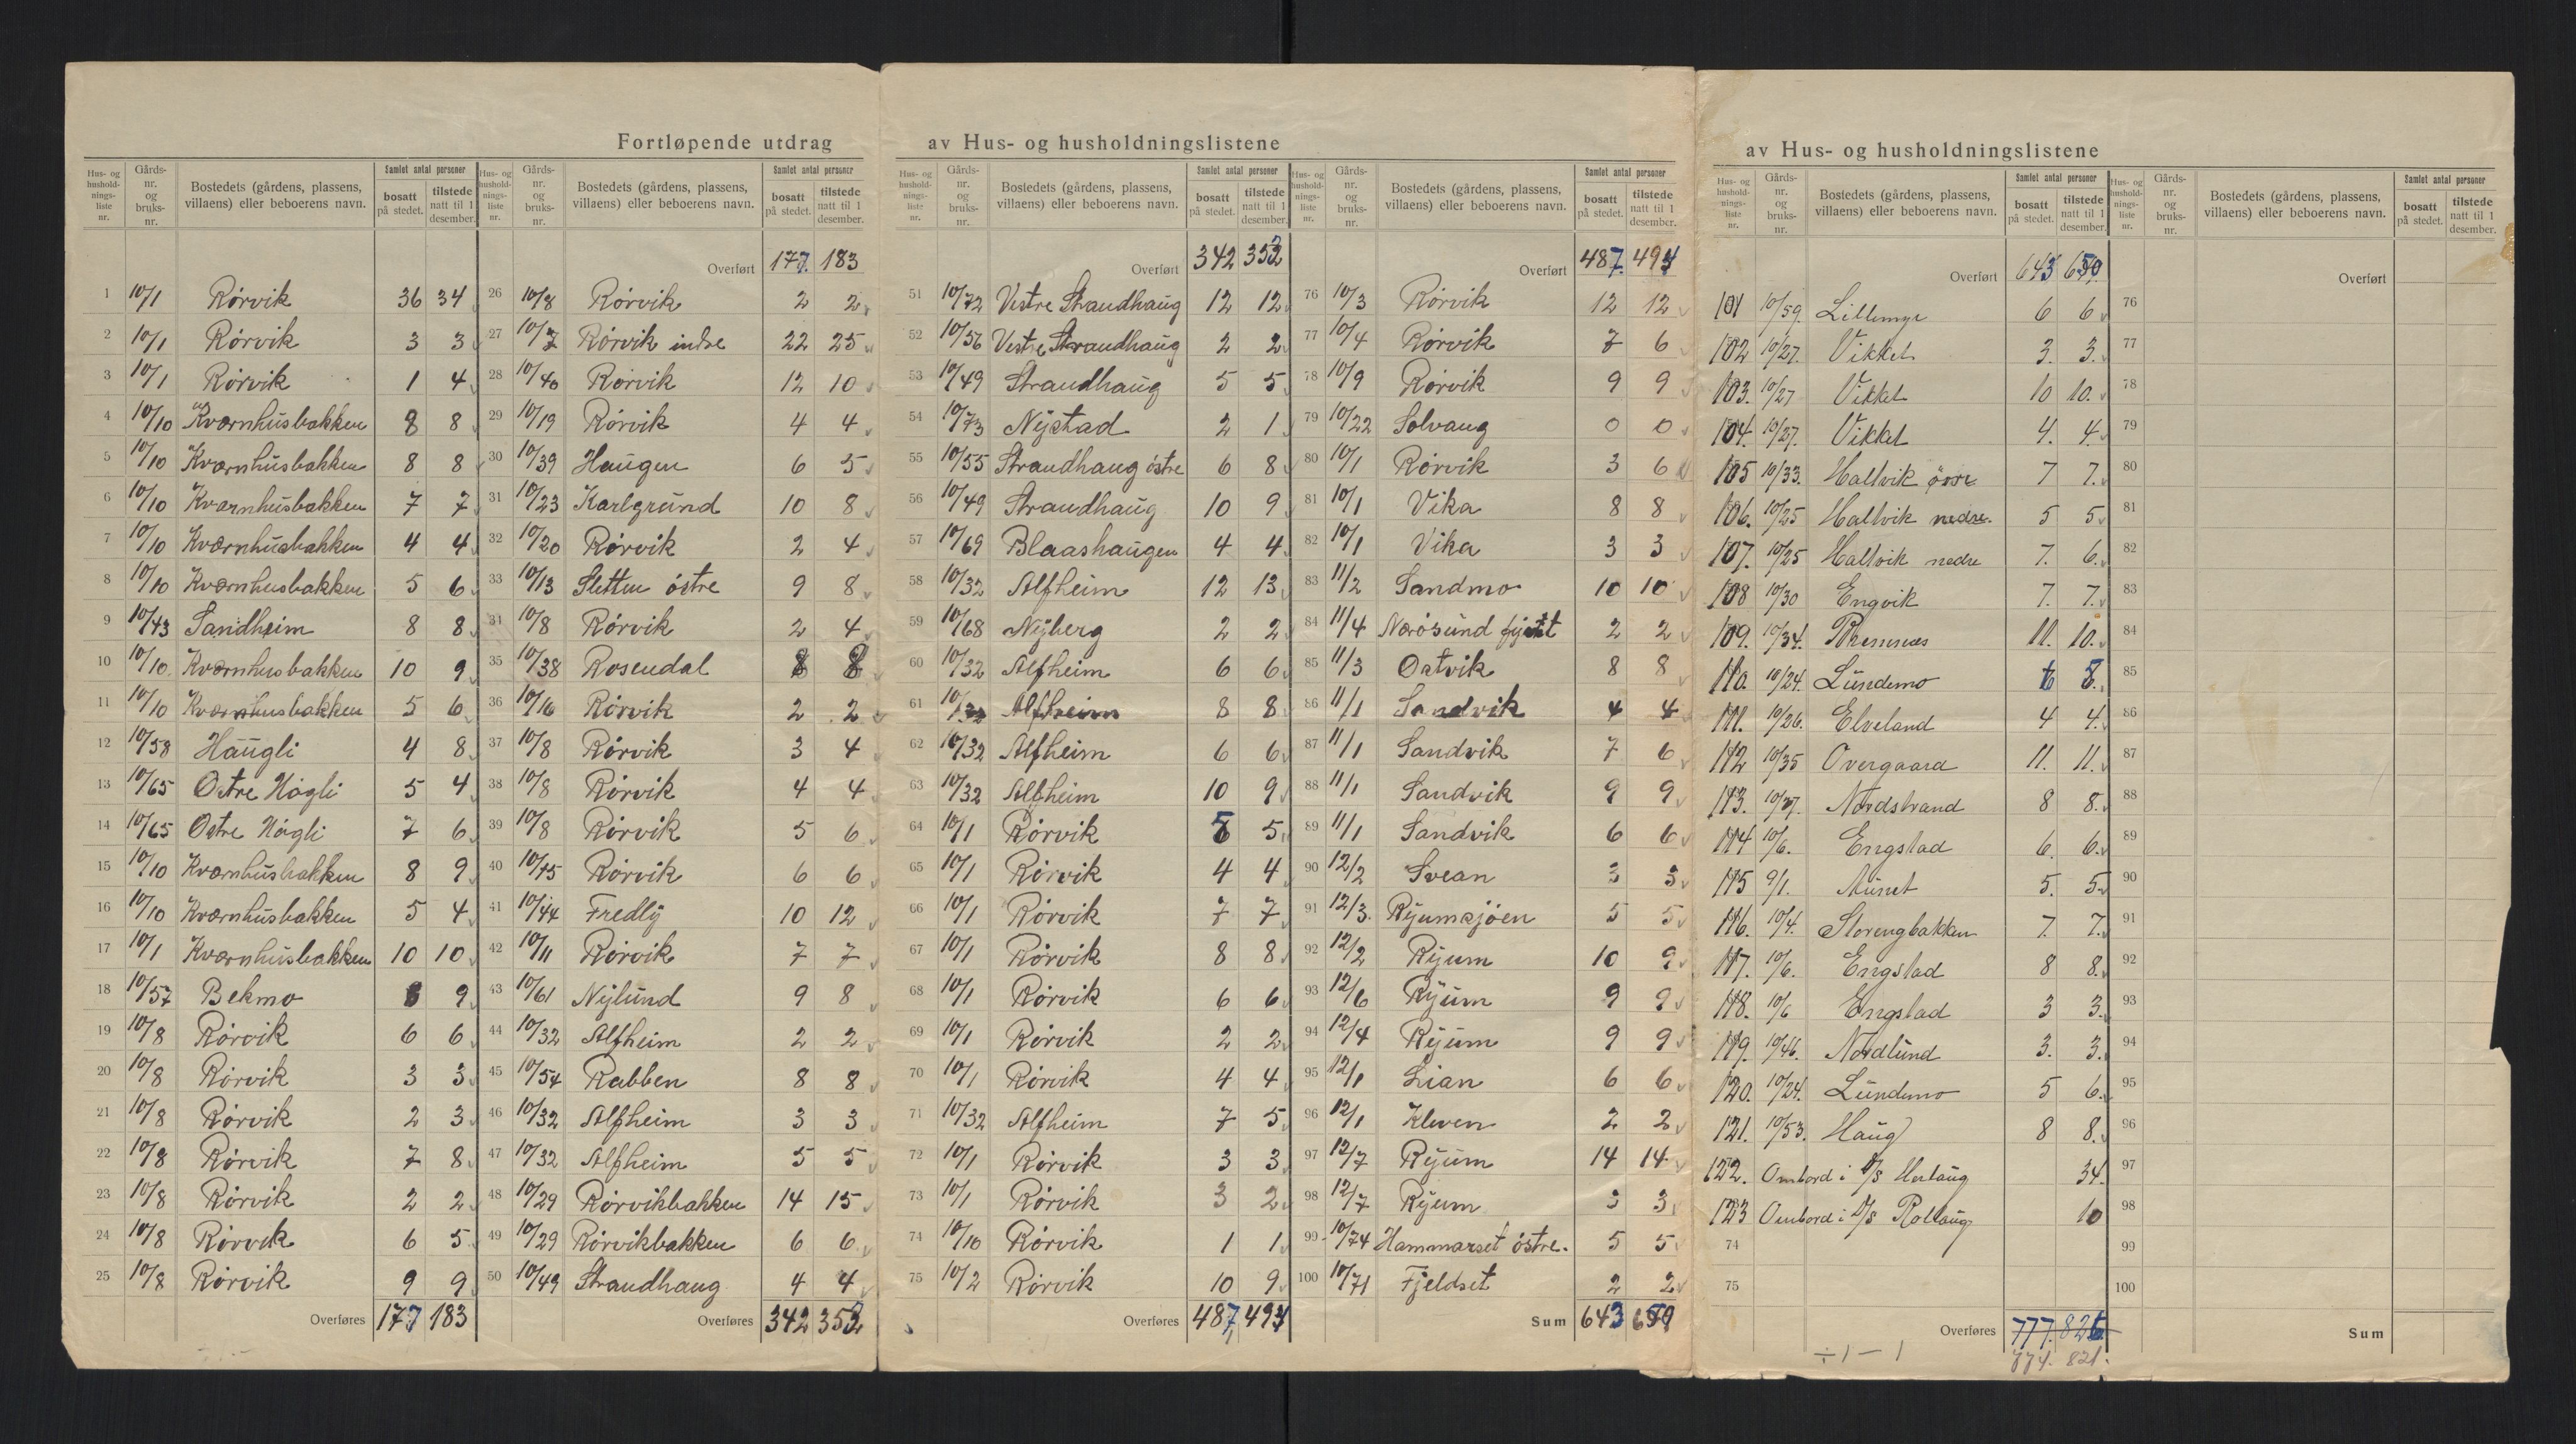 Fortløpende utdrag av Hus- og husholdningslistene
av Hus- og husholdningslistene
Hus- og hushold- nings- liste nr. Gårds- nr. og bruks- nr. Bostedets (gårdens, plassens, villaens) eller beboerens navn. Samlet antal personer bosatt på stedet. tilstede natt til 1 desember.
1 10/1 Rörvik 36 34
2 10/1 Rörvik 3 3
3 10/1 Rörvik 1 4
4 10/10 Kværnhusbakken 8 8
5 10/10 Kværnhusbakken 8 8
6 10/10 Kværnhusbakken 7 7
7 10/10 Kværnhusbakken 4 4
8 10/10 Kværnhusbakken 5 6
9 10/43 Sandheim 8 8
10 10/10. Kværnhusbakken 10 9
11 10/10 Kværnhusbakken 5 6
12 10/58 Haugli 4 8
13 10/65 Östre Högli 5 4
14 10/65 Östre Högli 7 6
15 10/10 Kværnhusbakken 8 9
16 10/10 Kværnhusbakken 5 4
17 10/1 Kværnhusbakken 10 10
18 10/57 Bekmo 9
19 10/8 Rörvik 6 6
20 10/8 Rörvik 3 3
21 10/8 Rörvik 2 3
22 10/8 Rörvik 7 8
23 10/8 Rörvik 2 2
24 10/8 Rörvik 6 5
25 10/8 Rörvik 9 9
Overføres 177 183
Hus- og hushold- nings- liste nr. Gårds- nr. og bruks- nr. Bostedets (gårdens, plassens, villaens) eller beboerens navn. Samlet antal personer bosatt på stedet. tilstede natt til 1 desember.
Overført 177. 183
26 10/8 Rörvik 2 2
27 10/7 Rörvik indre 22 25
28 10/40 Rörvik 12 10
29 10/19 Rörvik 4 4
30 10/39 Haugen 6 5
31 10/23 Karlgrund 10 8
32 10/20 Rörvik 2 4
33 10/13 Sletten östre 9 8
34 10/8 Rörvik 2 4
35 10/38 Rosendal 8 8
36 10/16 Rörvik 2 2
37 10/8 Rörvik 3 4
38 10/8 Rörvik 4 4
39 10/8 Rörvik 5 6
40 10/75 Rörvik 6 6
41 10/44 Fredly 10 12
42 10/11 Rörvik 7 7
43 10/61 Nylund 9 8
44 10/32 Alfheim 2 2
45 10/54 Rabben 8 8
46 10/32 Alfheim 3 3
47 10/32 Alfheim 5 5
48 10/29 Rörvikbakken 14 15
49 10/29 Rörvikbakken 6 6
50 10/49 Strandhaug 4 4
Overføres 342 352
Hus- og hushold- nings- liste nr. Gårds- nr. og bruks- nr. Bostedets (gårdens, plassens, villaens) eller beboerens navn. Samlet antal personer bosatt på stedet. tilstede natt til 1 desember.
Overført 342 352
51 10/72 Vestre Strandhaug 12 12
52 10/56 Vestre Strandhaug 2 2
53 10/49 Strandhaug 5 5
54 10/73 Nystad 2 1
55 10/55 Strandhaug östre 6 8
56 10/49 Strandhaug 10 9
57 10/69 Blaashaugen 4 4
58 10/32 Alfheim 12 13
59 10/68 Nyberg 2 2
60 10/32 Alfheim 6 6
61 10/32 Alfheim 8 8
62 10/32 Alfheim 6 6
63 10/32 Alfheim 10 9
64 10/1 Rörvik 5
65 10/1 Rörvik 4 4
66 10/1 Rörvik 7 7
67 10/1 Rörvik 8 8
68 10/1 Rörvik 6 6
69 10/1 Rörvik 2 2
70 10/1 Rörvik 4 4
71 10/32 Alfheim 7 5
72 10/1 Rörvik 3 3
73 10/1 Rörvik 3 2
74 10/10 Rörvik 1 1
75 10/2 Rörvik 10 9
Overføres 487,
Hus- og hushold- nings- liste nr. Gårds- nr. og bruks- nr. Bostedets (gårdens, plassens, villaens) eller beboerens navn. Samlet antal personer bosatt på stedet. tilstede natt til 1 desember.
Overført 487.
76 10/3 Rörvik 12 12
77 10/4 Rörvik 7 6
78 10/9 Rörvik 9 9
79 10/22 Solvang 0 0
80 10/1 Rörvik 3 6
81 10/1 Vika 8 8
82 10/1 Vika 3 3
83 11/2 Sandmo 10 10
84 11/4 Nærösund 2 2
85 11/3 Ostvik 8 8
86 11/1 Sandvik 4 4
87 11/1 Sandvik 7 6
88 11/1 Sandvik 9 9
89 11/1 Sandvik 6 6
90 12/2 Svean 3 3
91 12/3. Ryumsjöen 5 5
92 12/2 Ryum 10 9
93 12/6 Ryum 9 9
94 12/4 Ryum 9 9
95 12/1 Lian 6 6
96 12/1 Kleven 2 2
97 12/7 Ryum 14 14
98 12/7 Ryum 3 3
99 10/74 Hammarset östre. 5 5
100 10/71 Fjeldset 2 2
Sum 643
Hus- og hushold- nings- liste nr. Gårds- nr. og bruks- nr. Bostedets (gårdens, plassens, villaens) eller beboerens navn. Samlet antal personer bosatt på stedet. tilstede natt til 1 desember.
Overført 643
101 10/59. Lillemyr 6 6
102 10/27. Vikket 3. 3.
103. 10/27 Vikket 10 10.
104. 10/27. Vikket 4. 4.
105 10/33. Hallvik övre 7 7.
106. 10/25 Hallvik nedre. 5 5
107. 10/25 Hallvik nedre 7. 6.
108 10/30 Engvik 7. 7.
109. 10/34. 11. 10.
110. 10/24. Lundemo 8.
111. 10/26. Elveland 4 4.
112 10/35 Overgaard 11. 11.
113. Nordstrand 8 8.
114 10/6. Engstad 6. 6.
115 9/1. 5. 5
116. 10/4. Storengbakken 7. 7.
117. 10/6. Engstad 8 8.
118. 10/6 Engstad 3 3.
119. 10/46. Nordlund 3. 3.
120. 10/24. Lundemo 5 6.
121. 10/53. Haug 8 8.
122. Ombord i D/S Herlaug 34.
123 Ombord i D/S Rollaug 10
74
75
Overføres 777.
÷ 1 — 1 774. 821.
Hus- og hushold- nings- liste nr. Gårds- nr. og bruks- nr. Bostedets (gårdens, plassens, villaens) eller beboerens navn. Samlet antal personer bosatt på stedet. tilstede natt til 1 desember.
Overført
76
77
78
79
80
81
82
83
84
85
86
87
88
89
90
91
92
93
94
95
96
97
98
99
100
Sum